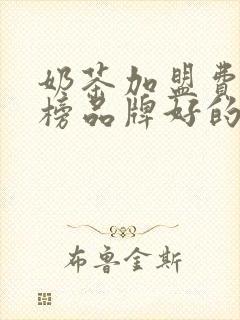 奶茶加盟费
榜品牌好的
布鲁金斯